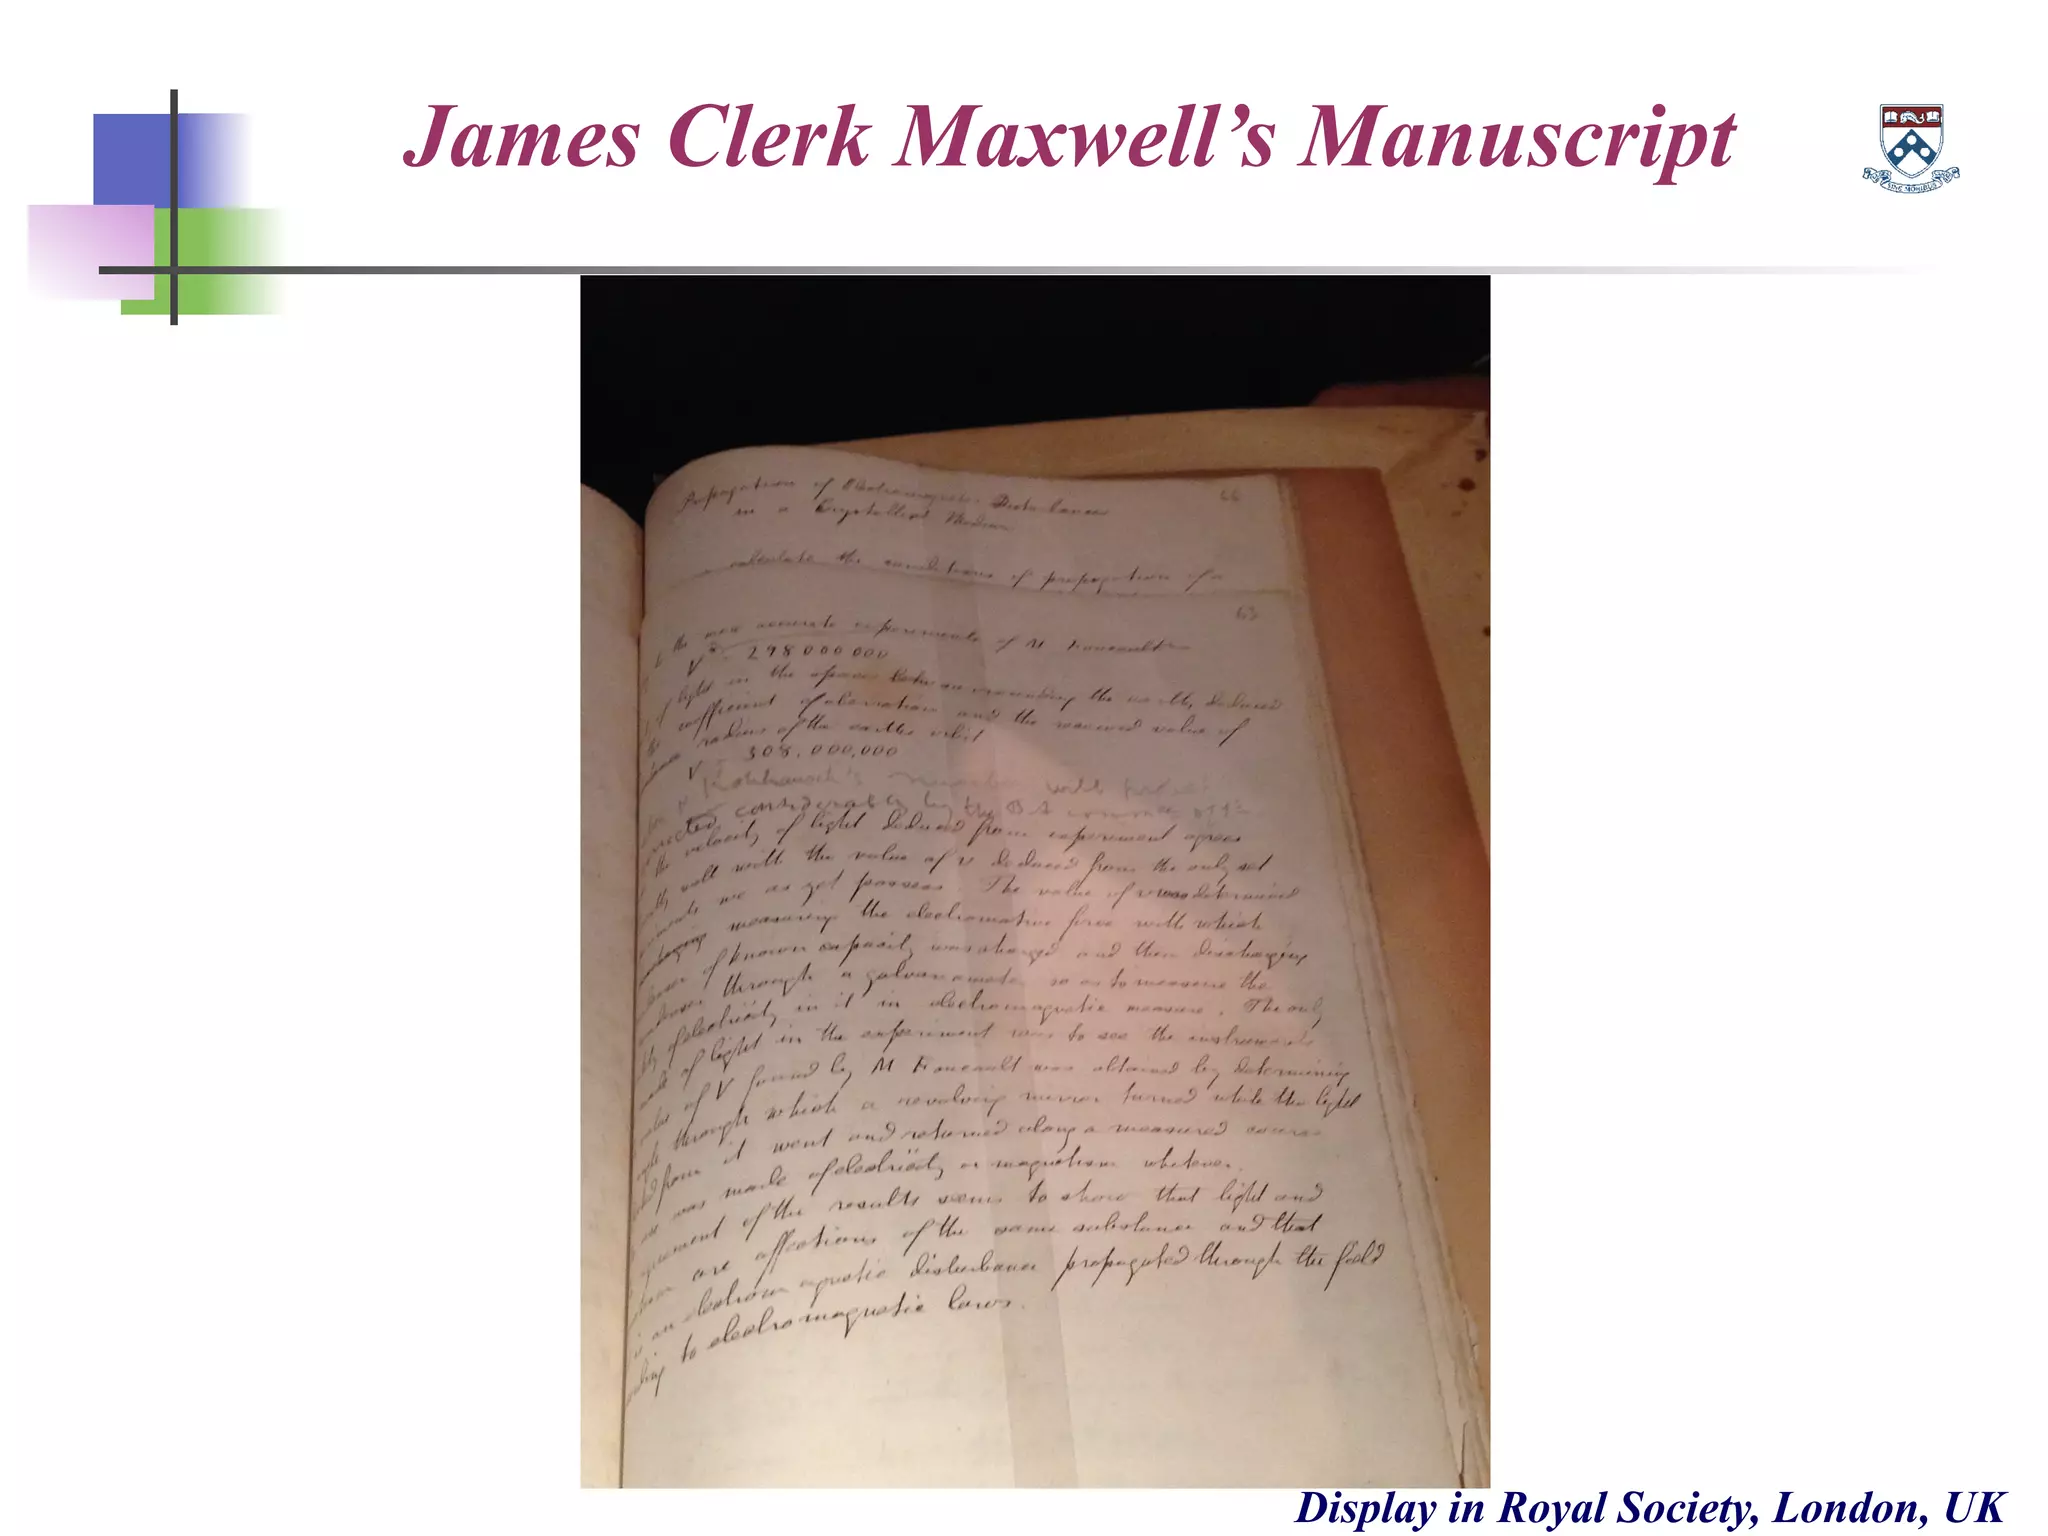 James Clerk Maxwell’s Manuscript
Propagation of Electromagnetic Disturbances 66
in a Crystallised Medium
calculate the conditions of propagation of a
65
the more accurate experiments of M Foucault
V = 298000000
of light in the space surrounding the earth, deduced
coefficient of aberration and the received value of
radius of the earths orbit
V = 308,000,000
Kohlrausch's number will have
corrected considerably by the B A
the velocity of light deduced from experiment agrees
well with the value of v deduced from the only set
we as yet possess. The value of v was determined
measuring the electromotive force with which
of known capacity was charged and then discharging
through a galvanometer so as to measure the
of electricity in it in electromagnetic measure. The only
of light in the experiment was to see the instruments
of V found by M Foucault was obtained by determining
through which a revolving mirror turned while the light
from it went and returned along a measured course
was made of electricity or magnetism whatever.
agreement of the results seems to show that light and
are affections of the same substance and that
is an electromagnetic disturbance propagated through the field
to electromagnetic laws.
Display in Royal Society, London, UK